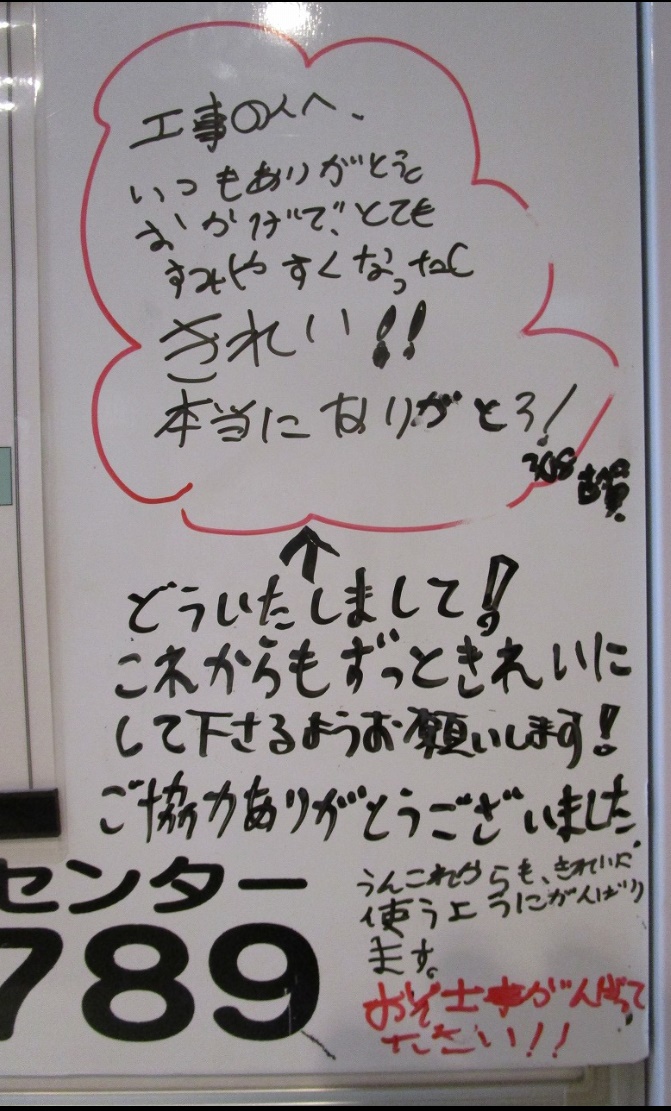 工事の人へ、
いつもありがとう
おかげで、とても
すみやすくなったし
きれい!!
本当にありがとう!
308
古賀
↑
どういたしまして!
これからもずっときれいに
して下さるようお願いします!
ご協力ありがとうございました。
センター
789
うんこれからも、きれいに
使うようにがんばり
ます。
お仕事がんばって
ください!!